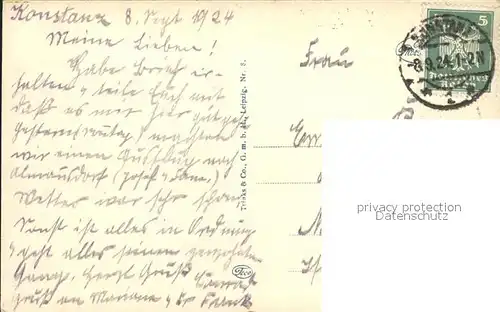 Konstanz 8. Sept 1924
Meine Lieben!
Habe Brief er-
halten & teile Euch mit
daß es mir hier gut geht
Gestern machten
wir einen Ausflug nach
Almansdorf (Josef &
Wetter war sehr schön
Sonst ist alles in Ordnung
& geht alles seinen gewohnten
Gang. Herzl Gruß
Gruß an Mariane & Fr Frank
Frau
5
8.9.24.1-2N
Trinks & Co., G. m. b. H., Leipzig. Nr. 8.
Trico
privacy protection
Datenschutz